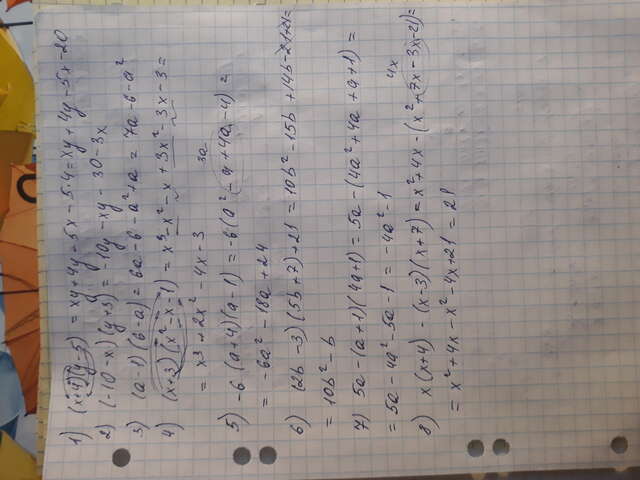 1) (x+4)(y-5) = xy+4y-5x-5·4=xy+4y-5x-20
2) (-10-x)(y+3) = -10y-xy-30-3x
3) (a-1)(6-a) = 6a-6-a²+a = 7a-6-a²
4) (x+3)(x²-x-1) = x³-x²-x+3x²-3x-3=
= x³+2x²-4x-3
3a
5) -6(a+4)(a-1)=-6(a²-a+4a-4)=
= -6a²-18a+24
6) (2b-3)(5b+7)+21=10b²-15b+14b-21+21=
= 10b²-b
7) 5a-(a+1)(4a+1)=5a-(4a²+4a+a+1)=
= 5a-4a²-5a-1 = -4a²-1
4x
8) x(x+4)-(x-3)(x+7)=x²+4x-(x²+7x-3x-21)=
= x²+4x-x²-4x+21=21